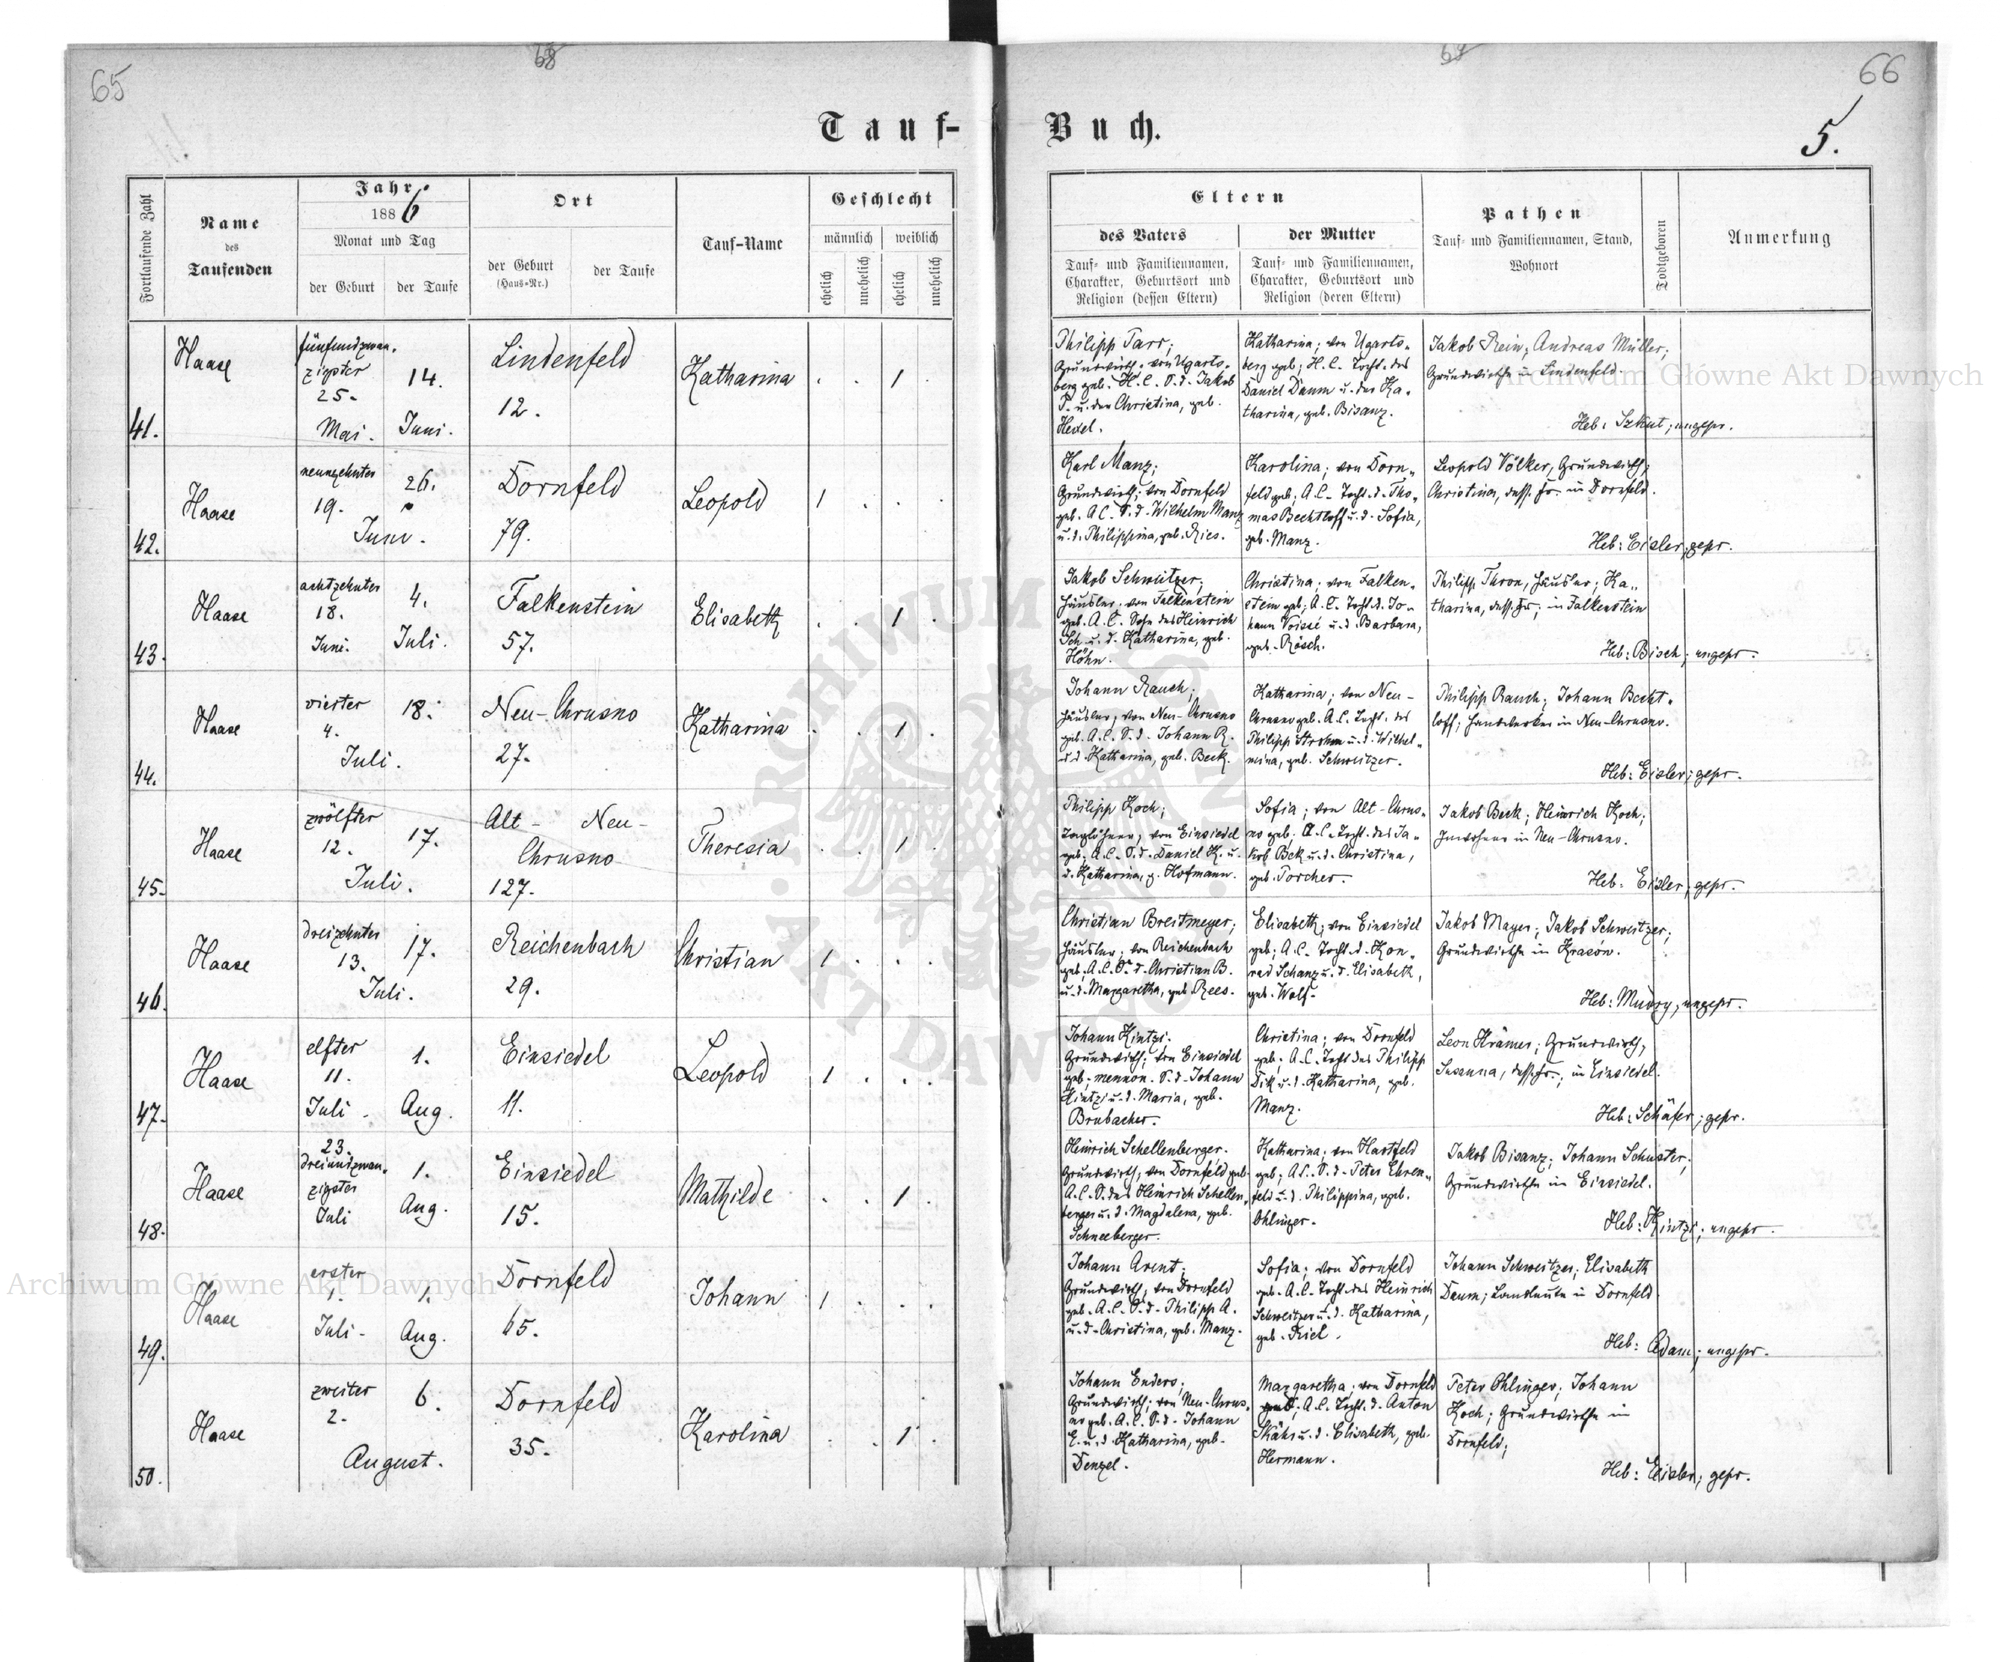 65
68
69
66
Tauf-
Buch.
5.
Fortlaufende Zahl
Name
des
Taufenden
Jahr
1886
Monat und Tag
der Geburt
der Taufe
Ort
der Geburt
(Haus-Nr.)
der Taufe
Tauf-Name
Geschlecht
männlich
weiblich
ehelich
unehelich
ehelich
unehelich
Eltern
des Vaters
Tauf- und Familiennamen,
Charakter, Geburtsort und
Religion (dessen Eltern)
der Mutter
Tauf- und Familiennamen,
Charakter, Geburtsort und
Religion (deren Eltern)
Pathen
Tauf- und Familiennamen, Stand,
Wohnort
Todtgeboren
Anmerkung
41.
Haase
fünfundzwan-
zigster
25.
Mai.
14.
Juni.
Lindenfeld
12.
Katharina
1
Philipp Tarr;
Grundwirth; von Ugarts-
berg geb. H. C. S. d. Jakob
T. u. der Christina, geb.
Hexel.
Katharina; von Ugarts-
berg geb; H. C. Tocht. des
Daniel Daum u. der Ka-
tharina, geb. Bisanz.
Jakob Rein; Andreas Müller;
Grundwirthe in Lindenfeld.
Heb: Szkut; ungepr.
42.
Haase
neunzehnter
19.
26.
Juni.
Dornfeld
79.
Leopold
1
Karl Manz;
Grundwirth; von Dornfeld
geb. A. C. S. d. Wilhelm Manz
u. d. Philippina, geb. Ries.
Karolina; von Dorn-
feld geb; A. C. Tocht. d. Tho-
mas Bechtloff u. d. Sofia,
geb. Manz.
Leopold Völker, Grundwirth;
Christina, dess. Fr. in Dornfeld.
Heb: Eisler; gepr.
43.
Haase
achtzehnter
18.
Juni.
4.
Juli.
Falkenstein
57.
Elisabeth
1
Jakob Schweitzer;
Häusler; von Falkenstein
geb. A. C. Sohn des Heinrich
Sch. u. d. Katharina, geb.
Höhn.
Christina; von Falken-
stein geb; A. C. Tocht. d. Jo-
hann Voissé u. d. Barbara,
geb. Rösch.
Philipp Thron, Häusler; Ka-
tharina, dess. Fr.; in Falkenstein
Heb: Bisch; ungepr.
44.
Haase
vierter
4.
18.
Juli.
Neu-Chrusno
27.
Katharina
1
Johann Rauch;
Häusler; von Neu-Chrusno
geb. A. C. S. d. Johann R.
u. d. Katharina, geb. Beck.
Katharina; von Neu-
Chrusno geb. A. C. Tocht. des
Philipp Strohm u. d. Wilhel-
mina, geb. Schweitzer.
Philipp Rauch; Johann Becht-
loff; Handwerker in Neu-Chrusno.
Heb: Eisler; gepr.
45.
Haase
zwölfter
12.
17.
Juli.
Alt- Neu-
Chrusno
127.
Theresia
1
Philipp Koch;
Taglöhner; von Einsiedel
geb. A. C. S. d. Daniel K. u.
d. Katharina, g. Hofmann.
Sofia; von Alt-Chrus-
no geb. A. C. Tocht. des Ja-
kob Bek u. d. Christina,
geb. Porcher.
Jakob Beck; Heinrich Koch;
Inwohner in Neu-Chrusno.
Heb: Eisler; gepr.
46.
Haase
dreizehnter
13.
17.
Juli.
Reichenbach
29.
Christian
1
Christian Breitmeyer;
Häusler; von Reichenbach
geb. A. C. S. d. Christian B.
u. d. Margaretha, geb. Rees.
Elisabeth; von Einsiedel
geb; A. C. Tocht. d. Kon-
rad Schanz u. d. Elisabeth,
geb. Wolf.
Jakob Mayer; Jakob Schweitzer;
Grundwirthe in Krasów.
Heb: Mudry, ungepr.
47.
Haase
elfter
11.
Juli.
1.
Aug.
Einsiedel
11.
Leopold
1
Johann Kintzi.
Grundwirth; von Einsiedel
geb; mennon. S. d. Johann
Kintzi u. d. Maria, geb.
Brubacher.
Christina; von Dornfeld
geb; A. C. Tocht des Philipp
Dik u. d. Katharina, geb.
Manz.
Leon Krämer; Grundwirth,
Susanna, dess. Fr.; in Einsiedel.
Heb: Schäfer; gepr.
48.
Haase
23.
dreiundzwan-
zigster
Juli
1.
Aug.
Einsiedel
15.
Mathilde
1
Heinrich Schellenberger.
Grundwirth; von Dornfeld geb.
A. C. S. des Heinrich Schellen-
berger u. d. Magdalena, geb.
Schneeberger.
Katharina; von Hartfeld
geb; A. C. S. d. Peter Ehren-
feld u. d. Philippina, geb.
Ohlinger.
Jakob Bisanz; Johann Schuster;
Grundwirthe in Einsiedel.
Heb: Kintzi; ungepr.
49.
Haase
erster
1.
Juli.
1.
Aug.
Dornfeld
65.
Johann
1
Johann Arent;
Grundwirth, von Dornfeld
geb. A. C. S. d. Philipp A.
u. d. Christina, geb. Manz.
Sofia; von Dornfeld
geb. A. C. Tocht. des Heinrich
Schweitzer u. d. Katharina,
geb. Riel.
Johann Schweitzer; Elisabeth
Daum; Landleute in Dornfeld.
Heb: Adam; ungepr.
50.
Haase
zweiter
2.
6.
August.
Dornfeld
35.
Karolina
1
Johann Enders;
Grundwirth; von Neu-Chrus-
no geb. A. C. S. d. Johann
E. u. d. Katharina, geb.
Denzel.
Margaretha; von Dornfeld
geb; A. C. Tocht. d. Anton
u. d. Elisabeth, geb.
Hermann.
Peter Ohlinger; Johann
Koch; Grundwirthe in
Dornfeld;
Heb: Eisler; gepr.
Archiwum Główne Akt Dawnych
Archiwum Główne Akt Dawnych
ARCHIWUM GŁÓWNE
AKT DAWNYCH